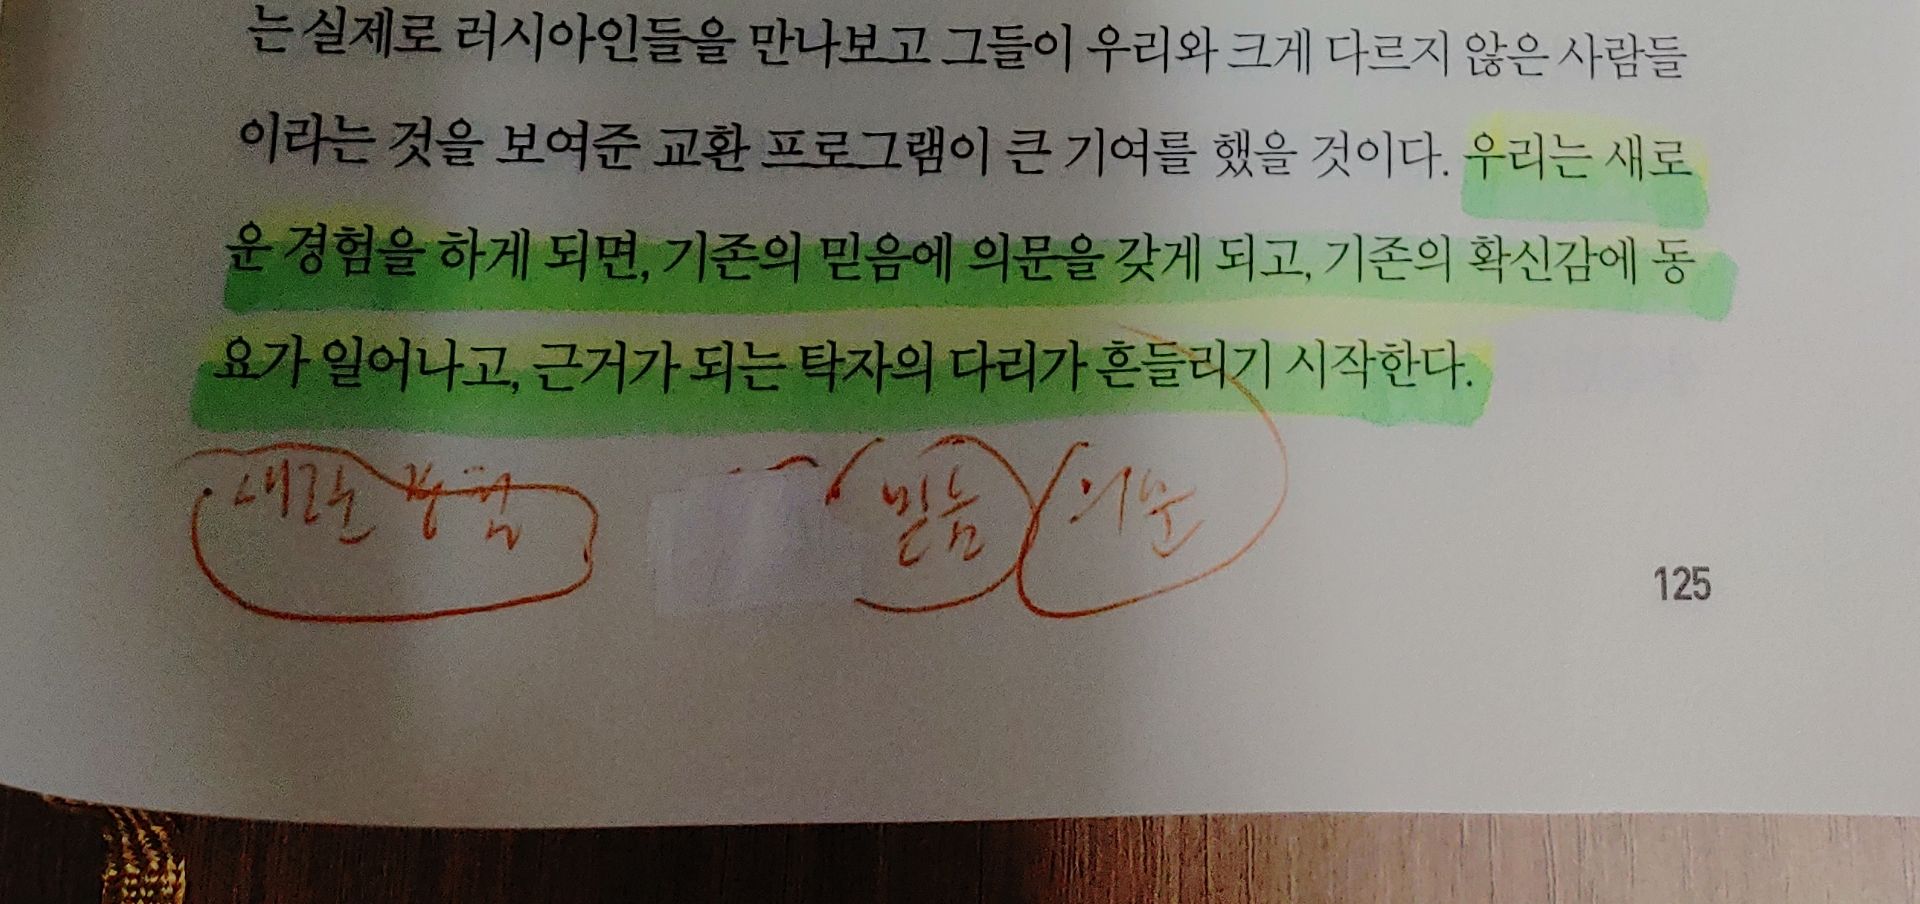 는 실제로 러시아인들을 만나보고 그들이 우리와 크게 다르지 않은 사람들
이라는 것을 보여준 교환 프로그램이 큰 기여를 했을 것이다. 우리는 새로
운 경험을 하게 되면, 기존의 믿음에 의문을 갖게 되고, 기존의 확신감에 동
요가 일어나고, 근거가 되는 탁자의 다리가 흔들리기 시작한다.
새로운 경험 믿음 의문
125